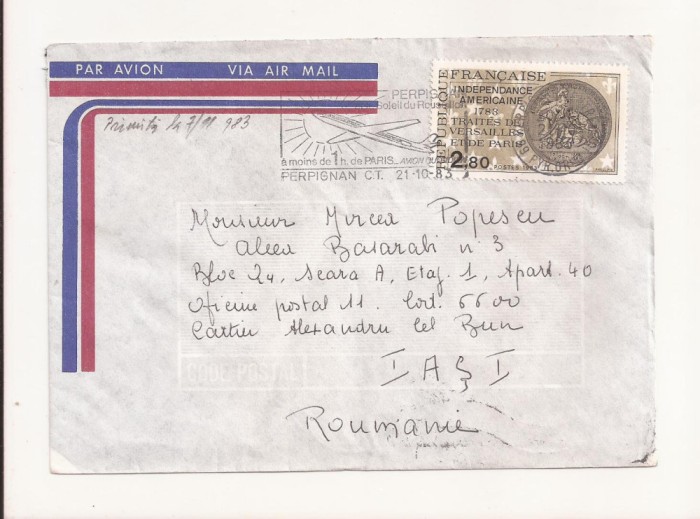 PAR AVION VIA AIR MAIL
Primită la 7/11 983
PERPIGNAN
Soleil du Roussillon
à moins de 1 h. de PARIS AVION
PERPIGNAN C.T. 21-10-83
RÉPUBLIQUE FRANÇAISE
INDEPENDANCE
AMERICAINE
1783
TRAITÉS DE
VERSAILLES
ET DE PARIS
2,80
POSTES
Monsieur Mircea Popescu
Aleea Basarabi n° 3
Bloc 24, Scara A, Etaj 1, Apart. 40
Oficiue postal 11. Cod. 6600
Cartier Alexandru cel Bun
CODE POSTAL
IAŞI
Roumanie